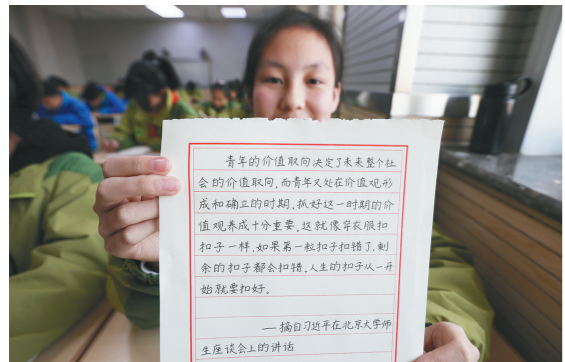 青年的价值取向决定了未来整个社
会的价值取向,而青年又处在价值观形
成和确立的时期,抓好这一时期的价
值观养成十分重要。这就像穿衣服扣
扣子一样,如果第一粒扣子扣错了,剩
余的扣子都会扣错。人生的扣子从一开
始就要扣好。
——摘自习近平在北京大学师
生座谈会上的讲话